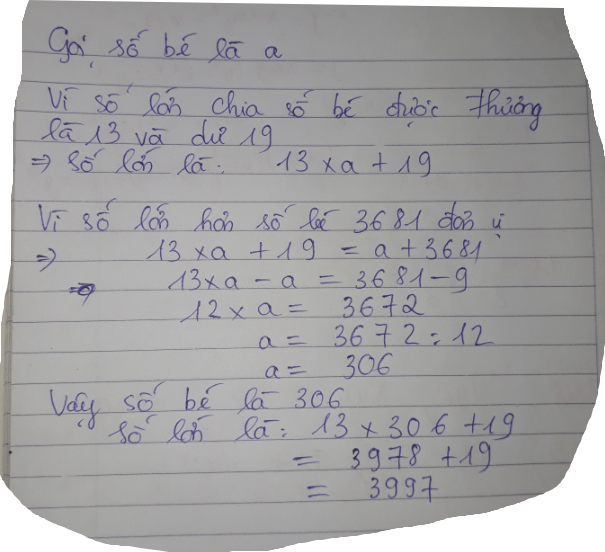 Gọi số bé là a
Vì số lớn chia số bé được thương
là 13 và dư 19
=> số lớn là: 13 x a + 19
Vì số lớn hơn số bé 3681 đơn vị
=> 13 x a + 19 = a + 3681
=> 13 x a - a = 3681 - 9
12 x a = 3672
a = 3672 : 12
a = 306
Vậy số bé là 306
số lớn là: 13 x 306 + 19
= 3978 + 19
= 3997